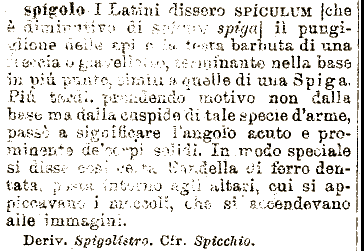 spigolo I Latini dissero SPICULUM [che
è diminutivo di spica spiga] il pungi-
glione delle api e la testa barbuta di una
freccia o giavellotto, terminante nella base
in più punte, simili a quelle di una Spiga.
Più tardi, prendendo motivo non dalla
base ma dalla cuspide di tale specie d'arme,
passò a significare l'angolo acuto e pro-
minente de' corpi solidi. In modo speciale
si disse così certa di ferro den-
tata, posta intorno agli altari, cui si ap-
piccavano i moccoli, che si accendevano
alle immagini.
Deriv. Spigolistro. Cfr. Spicchio.